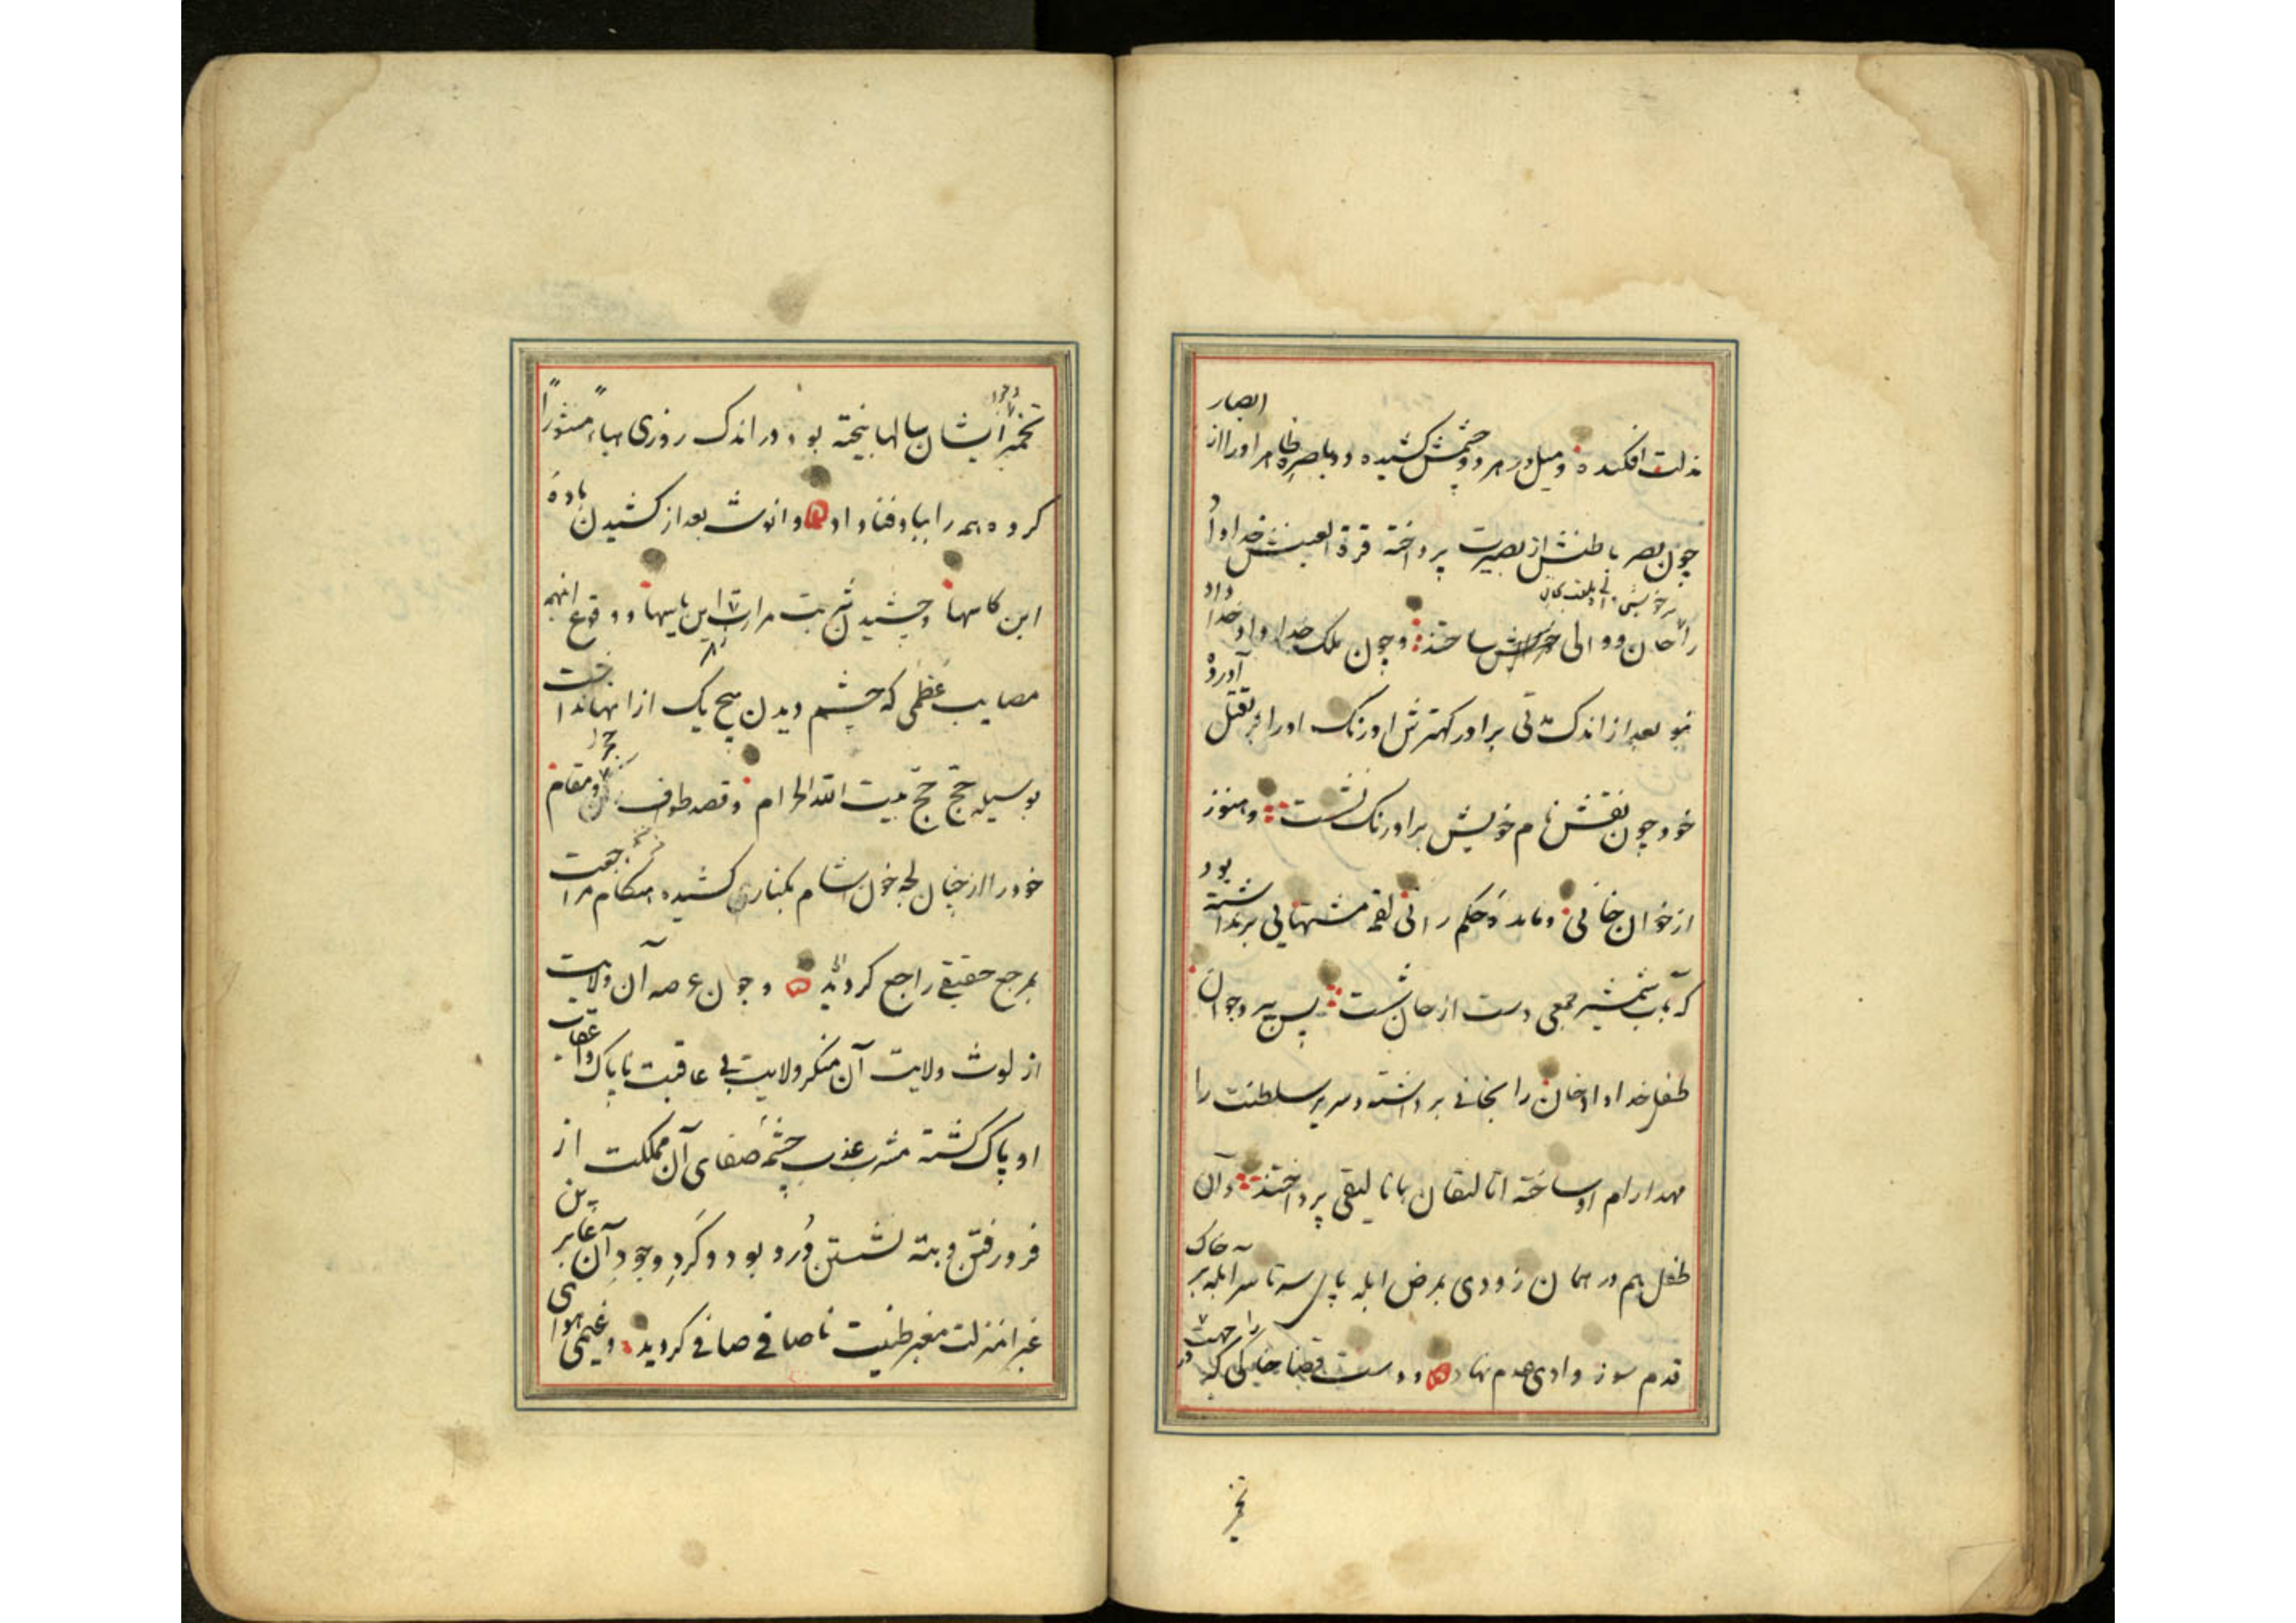 مذلت افکنده و میل در هر دو چشمش کشیده و دو باصره ظاهر او را از ابصار
چون بصر باطنش از بصیرت پرداخته قرة العینش خداداد
را خان و والی ساختند و چون ملک خداداد خدا داد
نبو بعد از اندک مدتی برادر کهترش اورنک او را بقتل آورده
خود چون نقش نام خویش بر اورنک نشست و هنوز
از خوان خانی و مایدهٔ حکم رانی لقمه مشتهایی برنداشته بود
که بآب شمشیر جمعی دست از جان شست پس پیر و جوان
طفل خداداد خان را بخانی برداشته و سریر سلطنت را
مهد ارام او ساخته اتالیقان باتالیقی پرداختند و آن
طفل هم در همان زودی بمرض ابله پای سه تا سر ابله بر خاک
قدم سوز وادی عدم نهاد و دست قضا خاکی که در
تخمیر
تخمیر ایشان سالها بیخته بود در اندک روزی هباءً منثوراً
کرده همه را بباد فنا داد و انوث بعد از کشیدن بادهٔ
این کاسها و چشیدن شربت مرارت این یاسها و وقوع اینهمه
مصایب عظمی که چشم دیدن هیچ یک از انها نداشت
بوسیله حج حج بیت الله الحرام و قصد طوف حجر و مقام
خود را از چنان لجه خون اشام بکناری کشیده هنکام مراجعت
بمرجع حقیقی راجع کردید و چون عرصه آن ولایت
از لوث ولایت آن منکر ولایت بی عاقبت ناپاک و اعقاب
او پاک کشته مشرب عذب چشمه صفای آن مملکت از
فرو رفتن و بته نشستن دُرد بود و کَردِ وجودِ آن غابرین
غبرا منزلت مغبر طنیت ناصافی صافی کردید و غیمی هوای